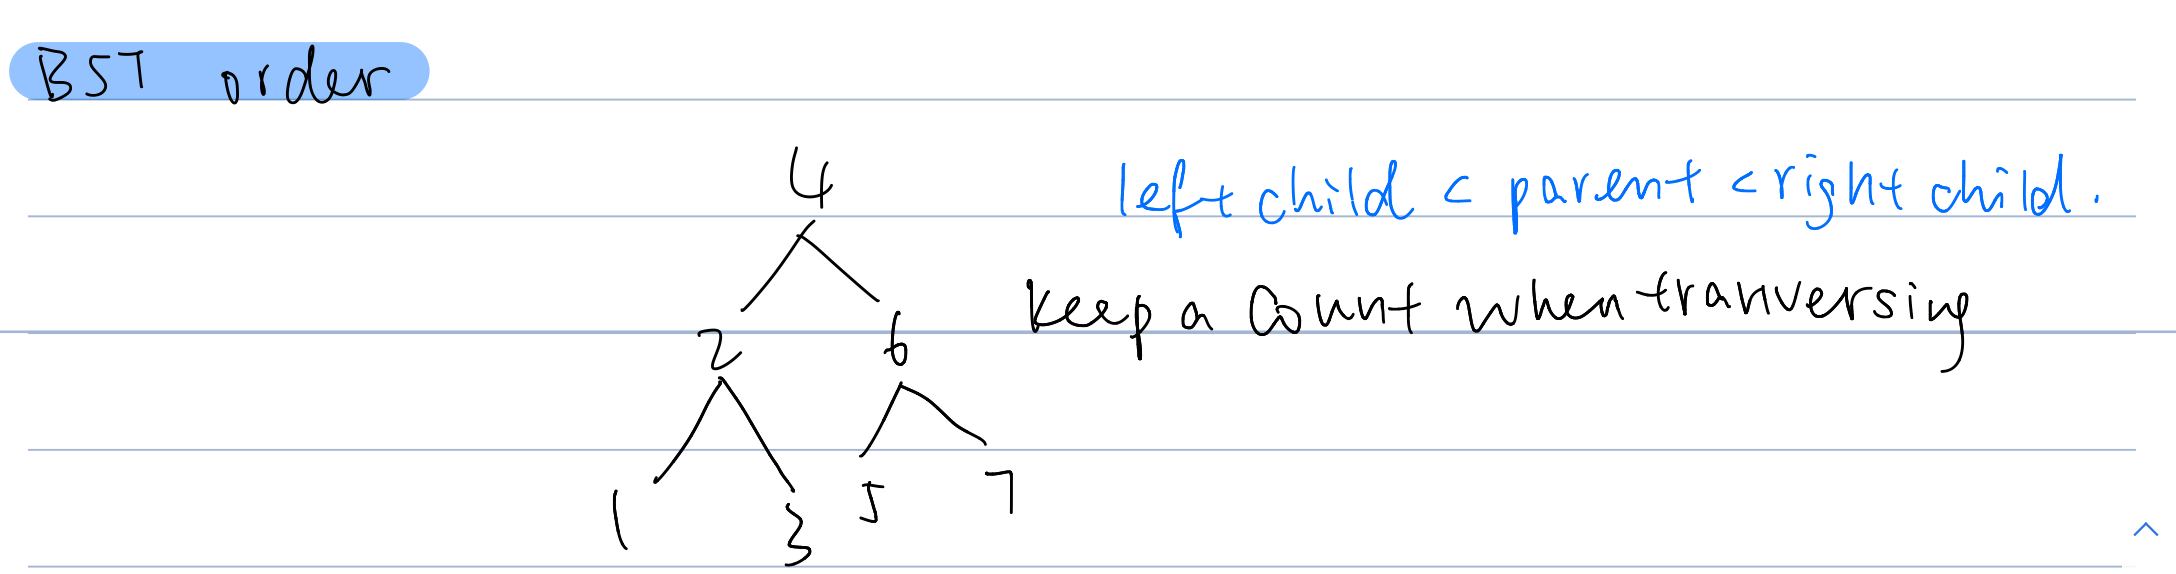 BST order
4
left child < parent < right child.
keep a count when tranversing
2 6
1 3 5 7